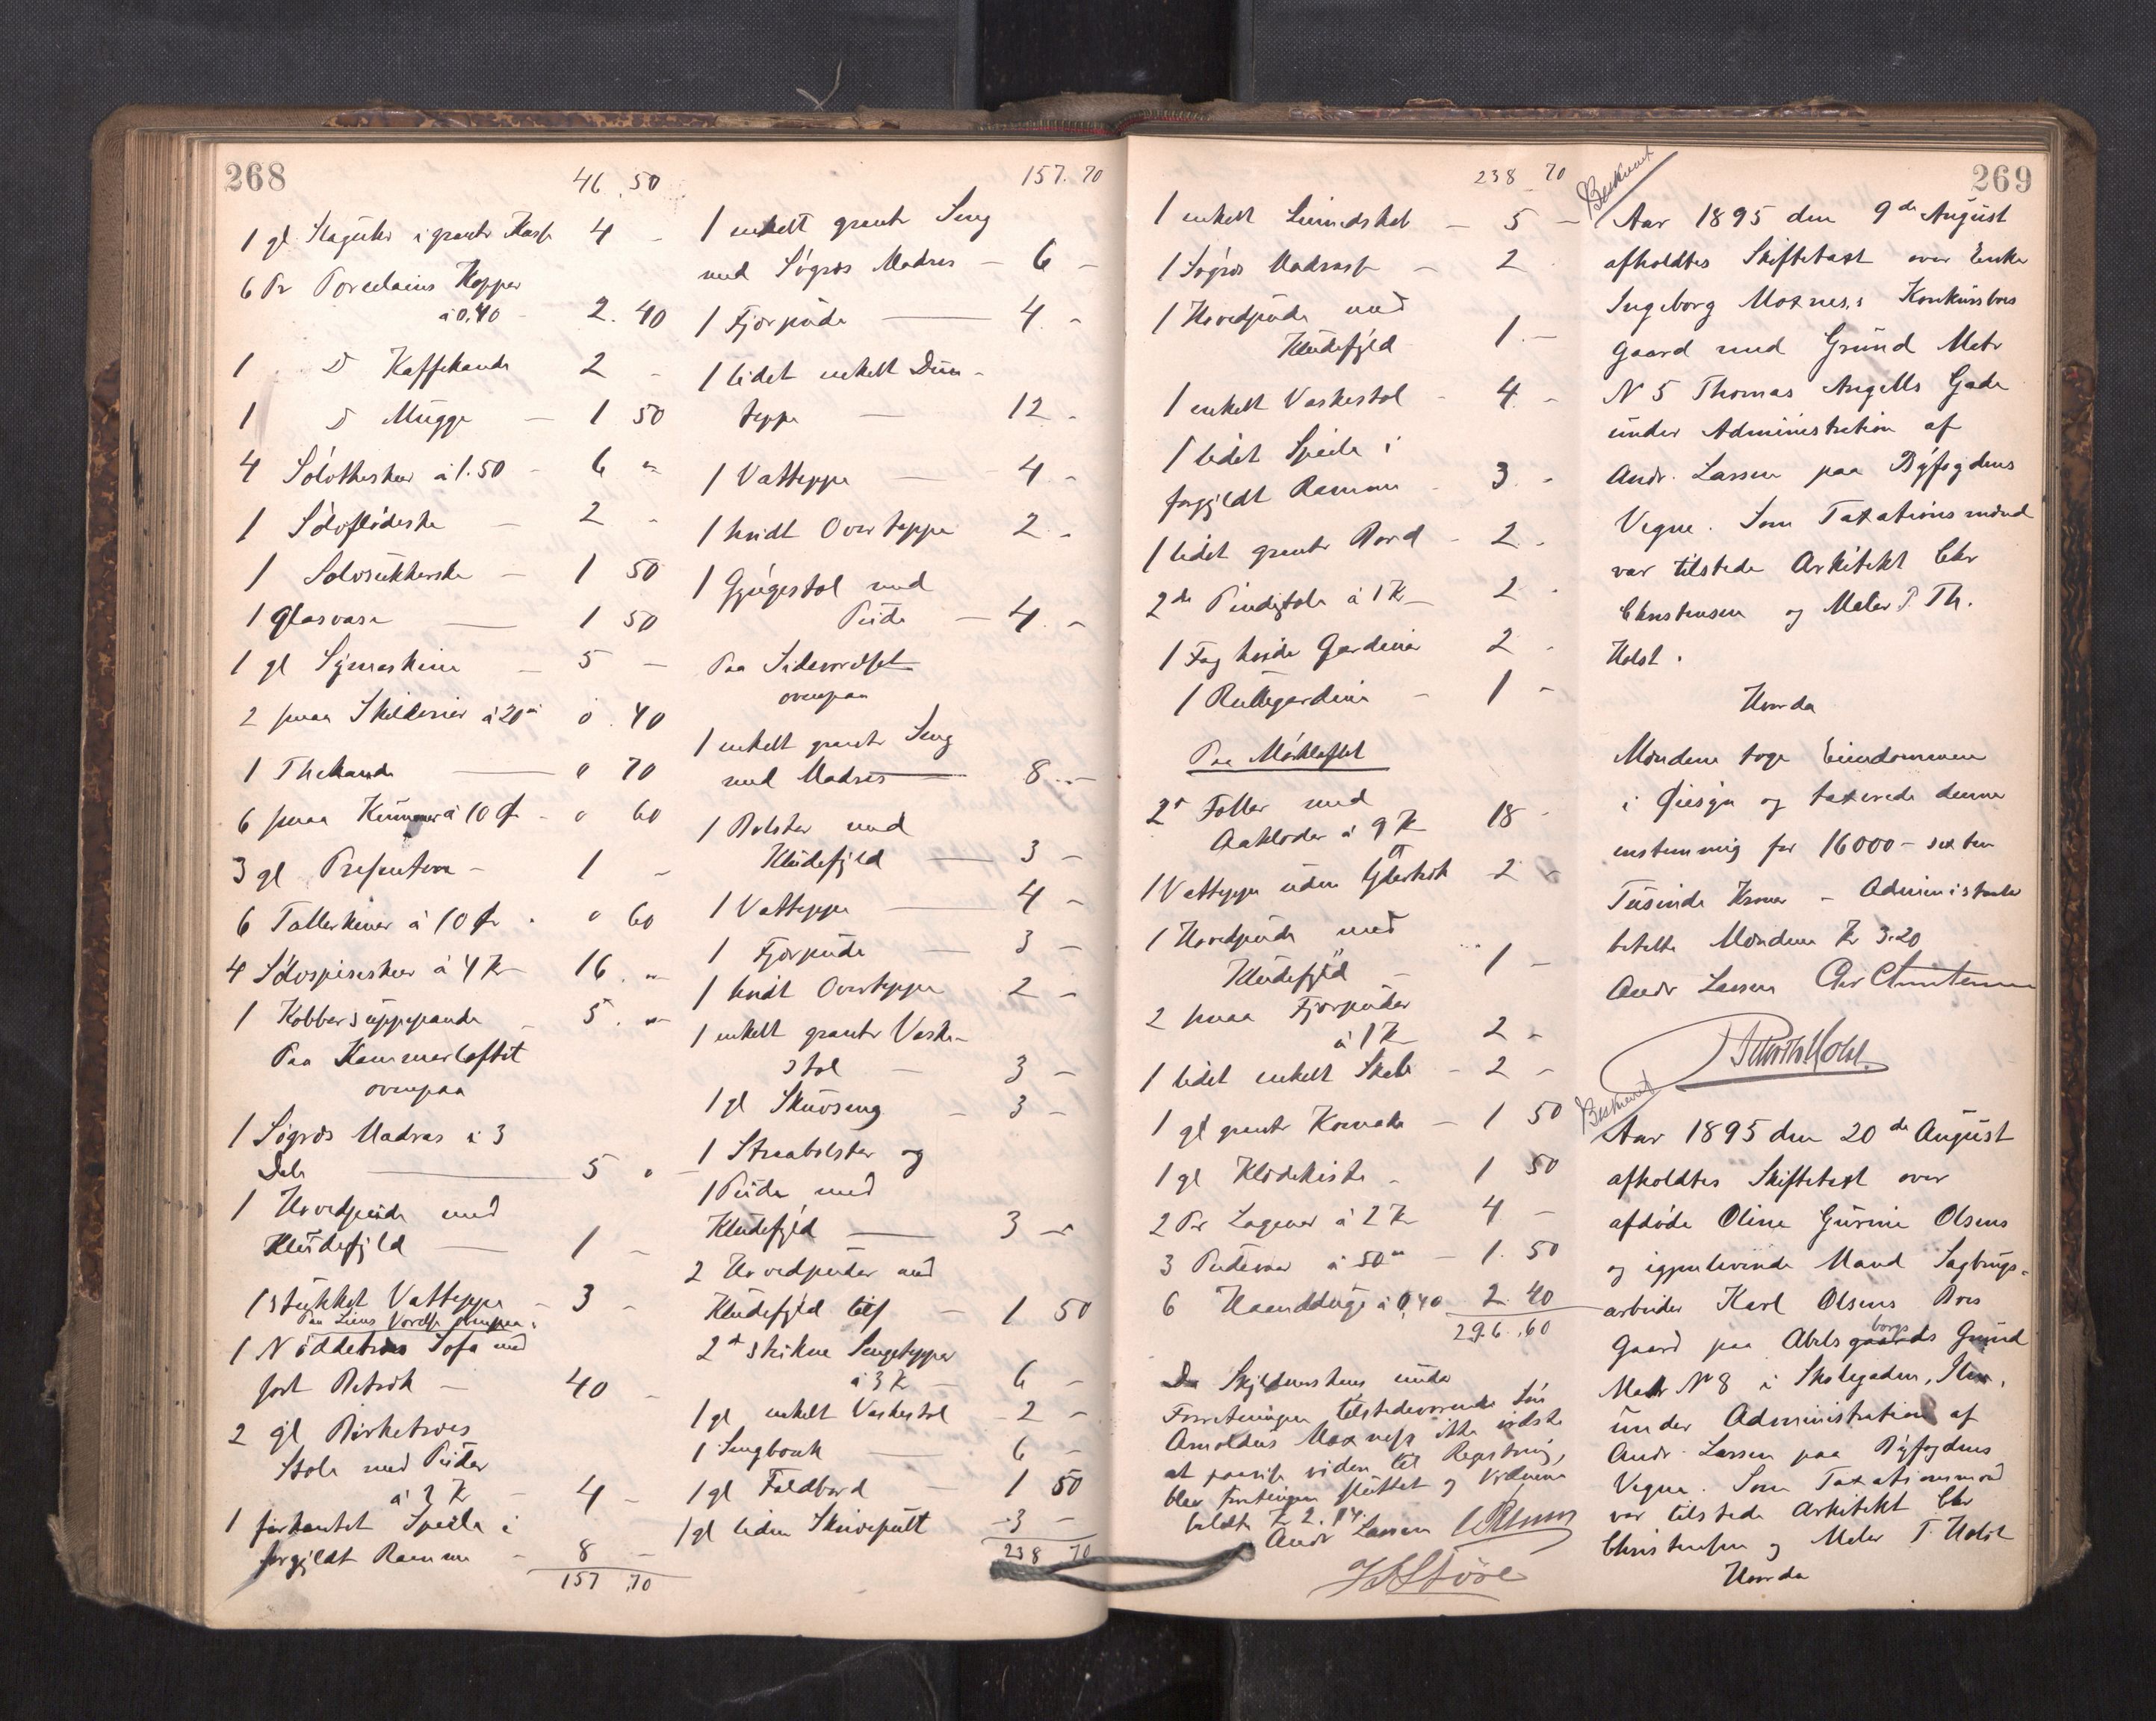 268
46. 50
1 gl. Slaguhr i grønt Kasse 4 -
6 Pr Porcelains Kopper
à 0,40 - 2. 40
1 D Kaffekande 2 -
1 D Mugge - 1 50
4 Sølvtheskeer à 1.50 - 6 "
1 Sølvflødeske - 2 -
1 Sølvsukkerske - 1 50
1 Glasvase - 1 50
1 gl Symaskine - 5 -
2 smaa Skilderier à 20 ø 0. 40
1 Thekande - " 70
6 smaa Kummer à 10 ø - " 60
3 gl Presenter - 1 -
6 Tallerkener à 10 ø - " 60
4 Sølvspiseskeer à 4 Kr 16. "
1 Kobbersuppepande - 5. "
Paa Kammerloftet
ovenpaa
1 Søgræs Madras i 3
Dele - 5 "
1 Hovedpude med
Kludefyld - 1 -
1 stukket Vatteppe - 3 -
1 Nøddetræs Sofa med
sort Betræk - 40 -
2 gl Birketræs
Stole med Puder
à 2 Kr - 4 -
1 firkantet Speile i
forgyldt Ramme - 8 -
157 .70
157. 70
1 enkelt grønt Seng
med Søgræs Madras - 6 -
1 Fjørpude - 4. -
1 lidet enkelt Dun-
teppe - 12 -
1 Vatteppe - 4 -
1 hvidt Overteppe 2. -
1 Gyngestol med
Pude - 4. -
Paa Sideværelset
ovenpaa
1 enkelt grønt Seng
med Madras - 8. -
1 Bolster med
Kludefyld - 3 -
1 Vatteppe - 4 -
1 Fjørpude - 3 -
1 hvidt Overteppe 2 -
1 enkelt grønt Vaske-
stol - 3 -
1 gl Skuvseng - 3 -
1 Straabolster og
1 Pude med
Kludefyld - 3 -
2 Hovedpuder med
Kludefyld - 1 50
2 strikne Sengetepper
à 3 Kr - 6 -
1 gl enkelt Vaskestol - 2 -
1 Sengbænk - 6 -
1 gl Foldbord - 1 50
1 gl liden Skrivepult - 3 -
238 70
238 70
1 enkelt Linnedskab - 5 -
1 Søgræs Madrasse - 2
1 Hovedpude med
Kludefyld 1. -
1 enkelt Vaskestol - 4. -
1 lidet Speile i
forgyldt Ramme - 3. -
1 lidet grønt Bord - 2 -
2de Pindestole à 1 Kr - 2 -
1 Fag hvide Gardiner 2 -
1 Rullegardin - 1 -
Paa Mørkloftet
2 Feller med
Aaklæder à 9 Kr 18 -
1 Vatteppe uden Betræk 2 -
1 Hovedpude med
Kludefyld - 1 -
2 smaa Fjørpuder
à 1 Kr 2 -
1 lidet enkelt Skab - 2 -
1 gl grønt Komode - 1 50
1 gl Klædekiste - 1 50
2 Par Lagener à 2 Kr 4 -
3 Pudevar à 50 ø - 1. 50
6 Haanddug à 0,40 2. 40
296. 60
Da Skyldnerskens under
Forretningen tilstedeværende Søn
Arnoldus Moxness ikke vidste
at paavise videre til Registrering,
blev Forretningen sluttet og Vidnerne
betalt Kr 2.14.
Andr Lassen
269
Beskrevet
Aar 1895 den 9de August
afholdtes Skiftetaxt over Enke
Ingeborg Moxness Konkursboes
Gaard med Grund Matr
N 5 Thomas Angells Gade
under Administration af
Andr. Lassen paa Byfogdens
Vegne. Som Taxationsmænd
var tilstede Arkitekt Chr
Christensen og Maler P. Th.
Holst.
Hvorda
Mændene toge Eiendommen
i Øiesyn og taxerede denne
enstemmig for 16000 - sexten
Tusinde Kroner - Administrator
betalte Mændene Kr 3.20
Andr Lassen Chr Christensen
Beskrevet
Aar 1895 den 20de August
afholdtes Skiftetaxt over
afdøde Oline Gurine Olsens
og igjenlevende Mand Sagbrugs-
arbeider Karl Olsens Boes
borgs
Gaard paa Abelsgaards Grund
Matr No 8 i Skolegaden, Ilen,
under Administration af
Andr. Lassen paa Byfogdens
Vegne. Som Taxationsmænd
var tilstede Arkitekt Chr
Christensen og Maler T. Holst
Hvorda